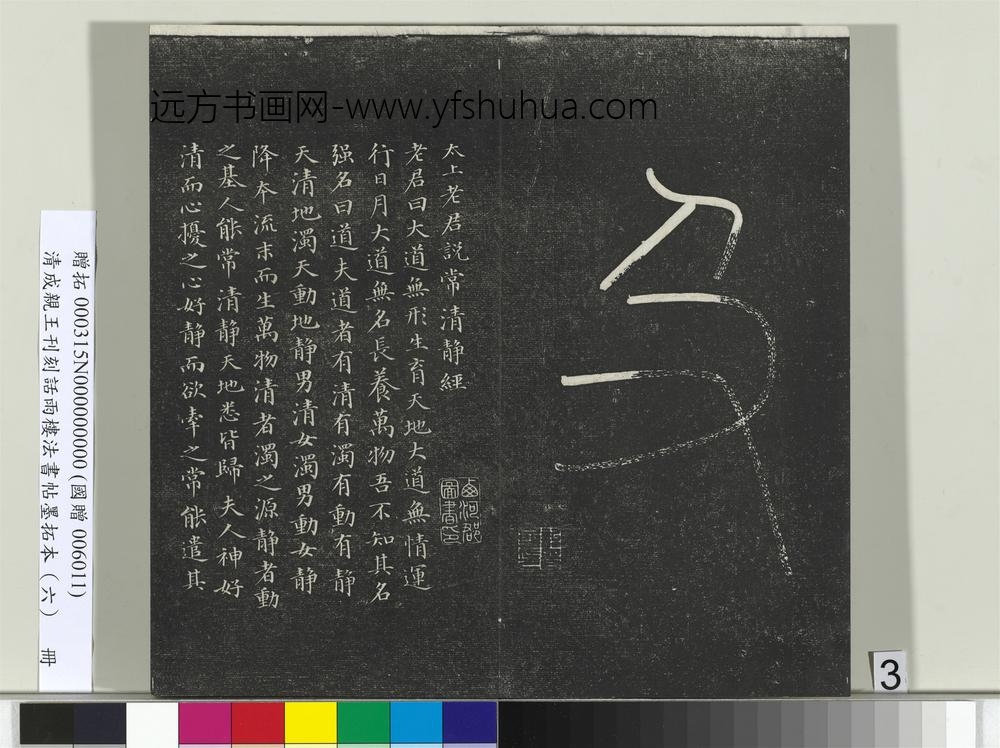 远方书画网-www.yfshuhua.com
太上老君説常清静經
老君曰大道無形生育天地大道無情運
行日月大道無名長養萬物吾不知其名
强名曰道夫道者有清有濁有動有静
天清地濁天動地静男清女濁男動女静
降本流末而生萬物清者濁之源静者動
之基人能常清静天地悉皆歸夫人神好
清而心擾之心好静而欲牽之常能遣其
贈拓 000315N000000000 (國贈 006011)
清成親王刊刻話雨樓法書帖墨拓本（六） 冊
3